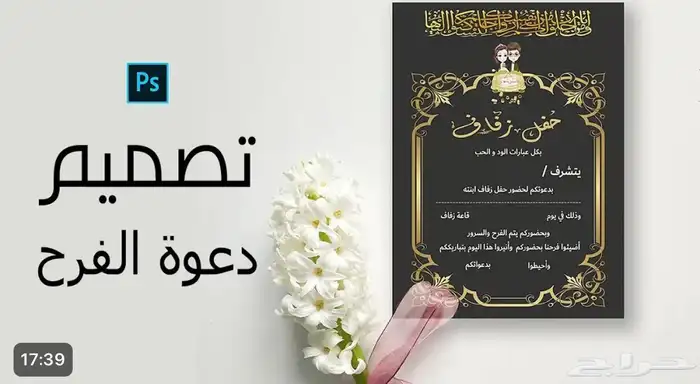 Ps
تصميم
دعوة الفرح
17:39
حفل زفاف
بكل عبارات الود و الحب
يتشرف /
بدعوتكم لحضور حفل زفاف ابنته
وذلك في يوم قاعة زفاف
وبحضوركم يتم الفرح والسرور
أضيئوا فرحنا بحضوركم وأنيروا هذا اليوم بتباريككم
وأحيطوا بدعواتكم
حراج